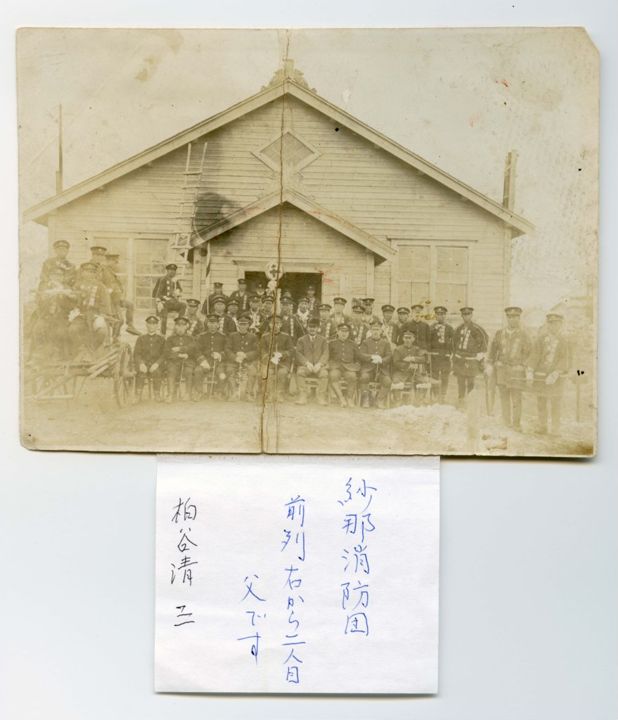 紗那消防団
前列右から二人目
父です
柏谷清三